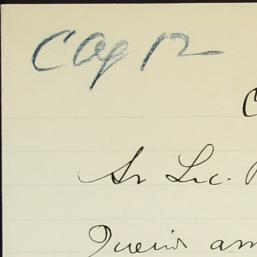 C Ag 12
C
Sr Lic.
Querido am